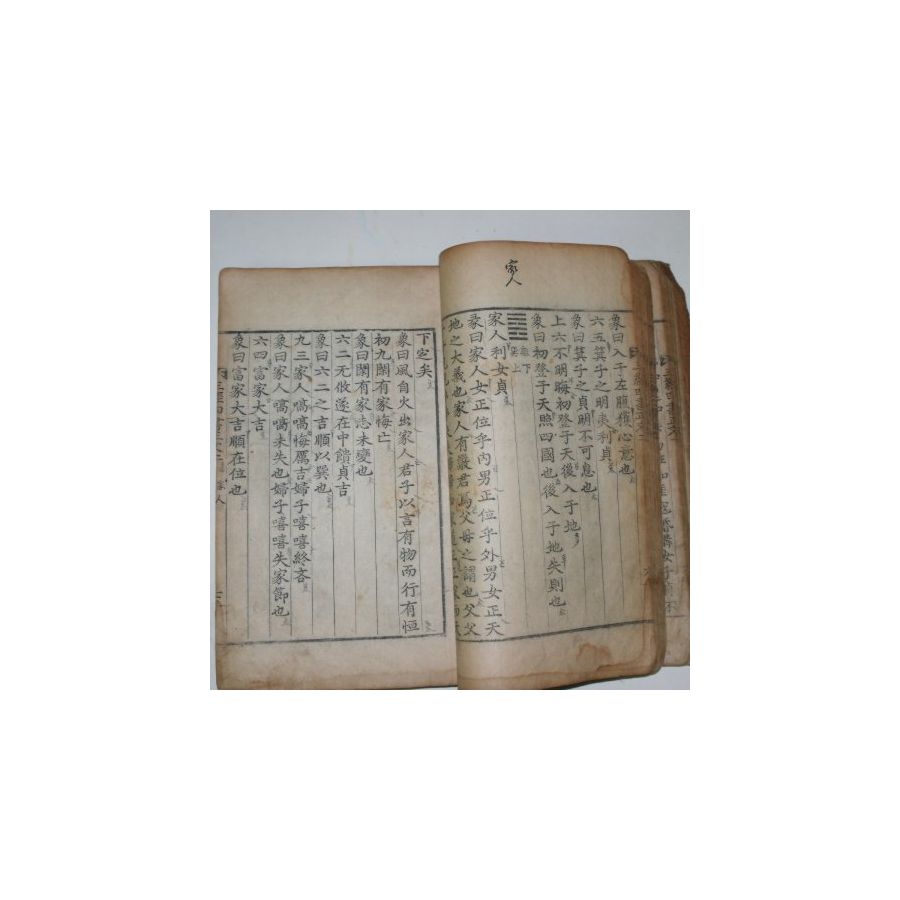 家人
象曰入于左腹獲心意也
六五箕子之明夷利貞
象曰箕子之貞明不可息也
上六不明晦初登于天後入于地
象曰初登于天照四國也後入于地失則也
離下
巽上
家人利女貞
彖曰家人女正位乎內男正位乎外男女正天
地之大義也家人有嚴君焉父母之謂也父父
下定矣
象曰風自火出家人君子以言有物而行有恒
初九閑有家悔亡
象曰閑有家志未變也
六二无攸遂在中饋貞吉
象曰六二之吉順以巽也
九三家人嗃嗃悔厲吉婦子嘻嘻終吝
象曰家人嗃嗃未失也婦子嘻嘻失家節也
六四富家大吉
象曰富家大吉順在位也